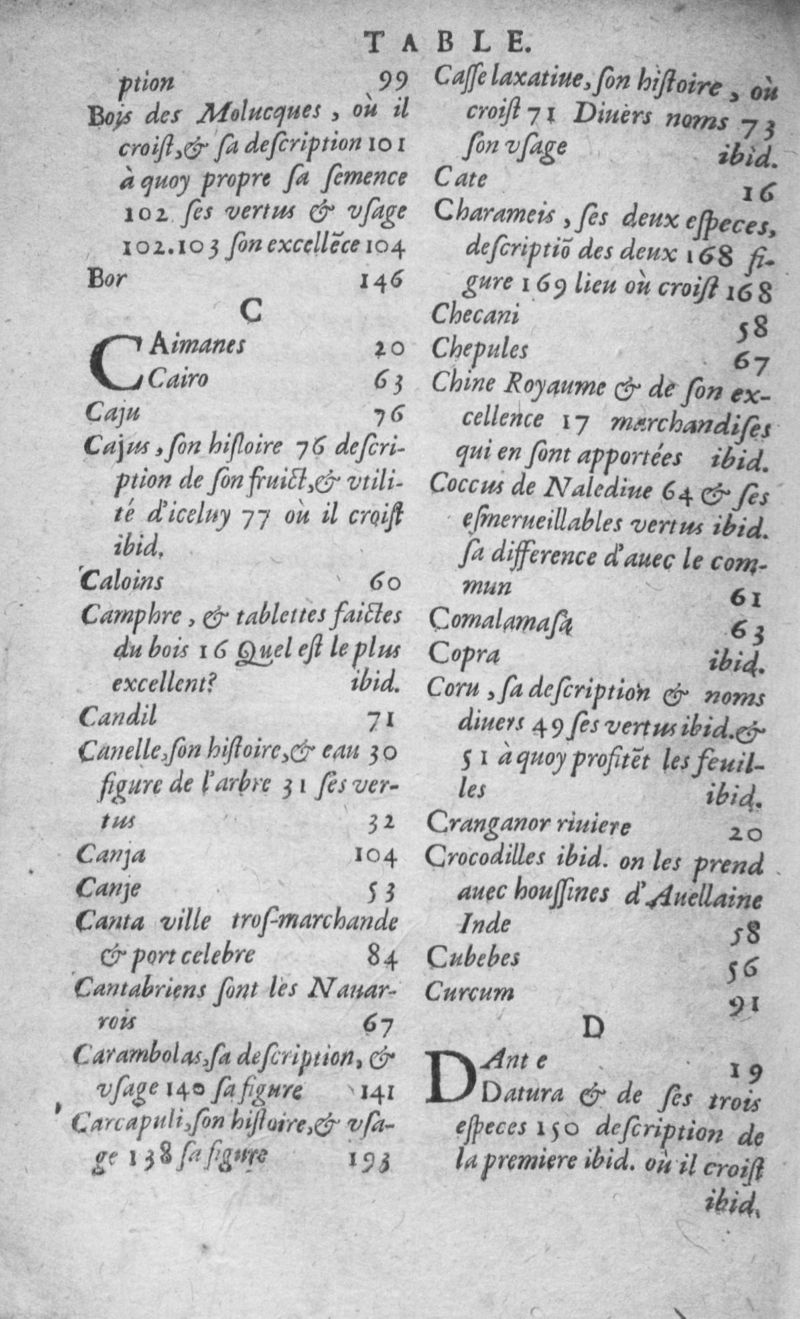 TABLE.
ption 99
Bois des Molucques, où il
croiſt,& ſa deſcription 101
à quoy propre ſa ſemence
102 ſes vertus & vſage
102.103 ſon excellẽce 104
Bor 146
C
CAimanes 20
Cairo 63
Caju 76
Cajus, ſon hiſtoire 76 deſcri-
ption de ſon fruict,& vtili-
té d'iceluy 77 où il croiſt
ibid.
Caloins 60
Camphre, & tablettes faictes
du bois 16 Quel eſt le plus
excellent? ibid.
Candil 71
Canelle,ſon hiſtoire,& eau 30
figure de l'arbre 31 ſes ver-
tus 32
Canja 104
Canje 53
Canta ville troſ-marchande
& port celebre 84
Cantabriens ſont les Nauar-
rois 67
Carambolas,ſa deſcription, &
vſage 140 ſa figure 141
Carcapuli,ſon hiſtoire,& vſa-
ge 138 ſa figure 193
Caſſe laxatiue, ſon hiſtoire, où
croiſt 71 Diuers noms 73
ſon vſage ibid.
Cate 16
Charameis, ſes deux eſpeces,
deſcriptiõ des deux 168 fi-
gure 169 lieu où croiſt 168
Checani 58
Chepules 67
Chine Royaume & de ſon ex-
cellence 17 marchandiſes
qui en ſont apportées ibid.
Coccus de Nalediue 64 & ſes
eſmerueillables vertus ibid.
ſa difference d'auec le com-
mun 61
Comalamaſa 63
Copra ibid.
Coru, ſa deſcription & noms
diuers 49 ſes vertus ibid.&
51 à quoy profitẽt les feuil-
les ibid.
Cranganor riuiere 20
Crocodilles ibid. on les prend
auec houſſines d'Auellaine
Inde 58
Cubebes 56
Curcum 91
D
DAnte 19
Datura & de ſes trois
eſpeces 150 deſcription de
la premiere ibid. où il croiſt
ibid.